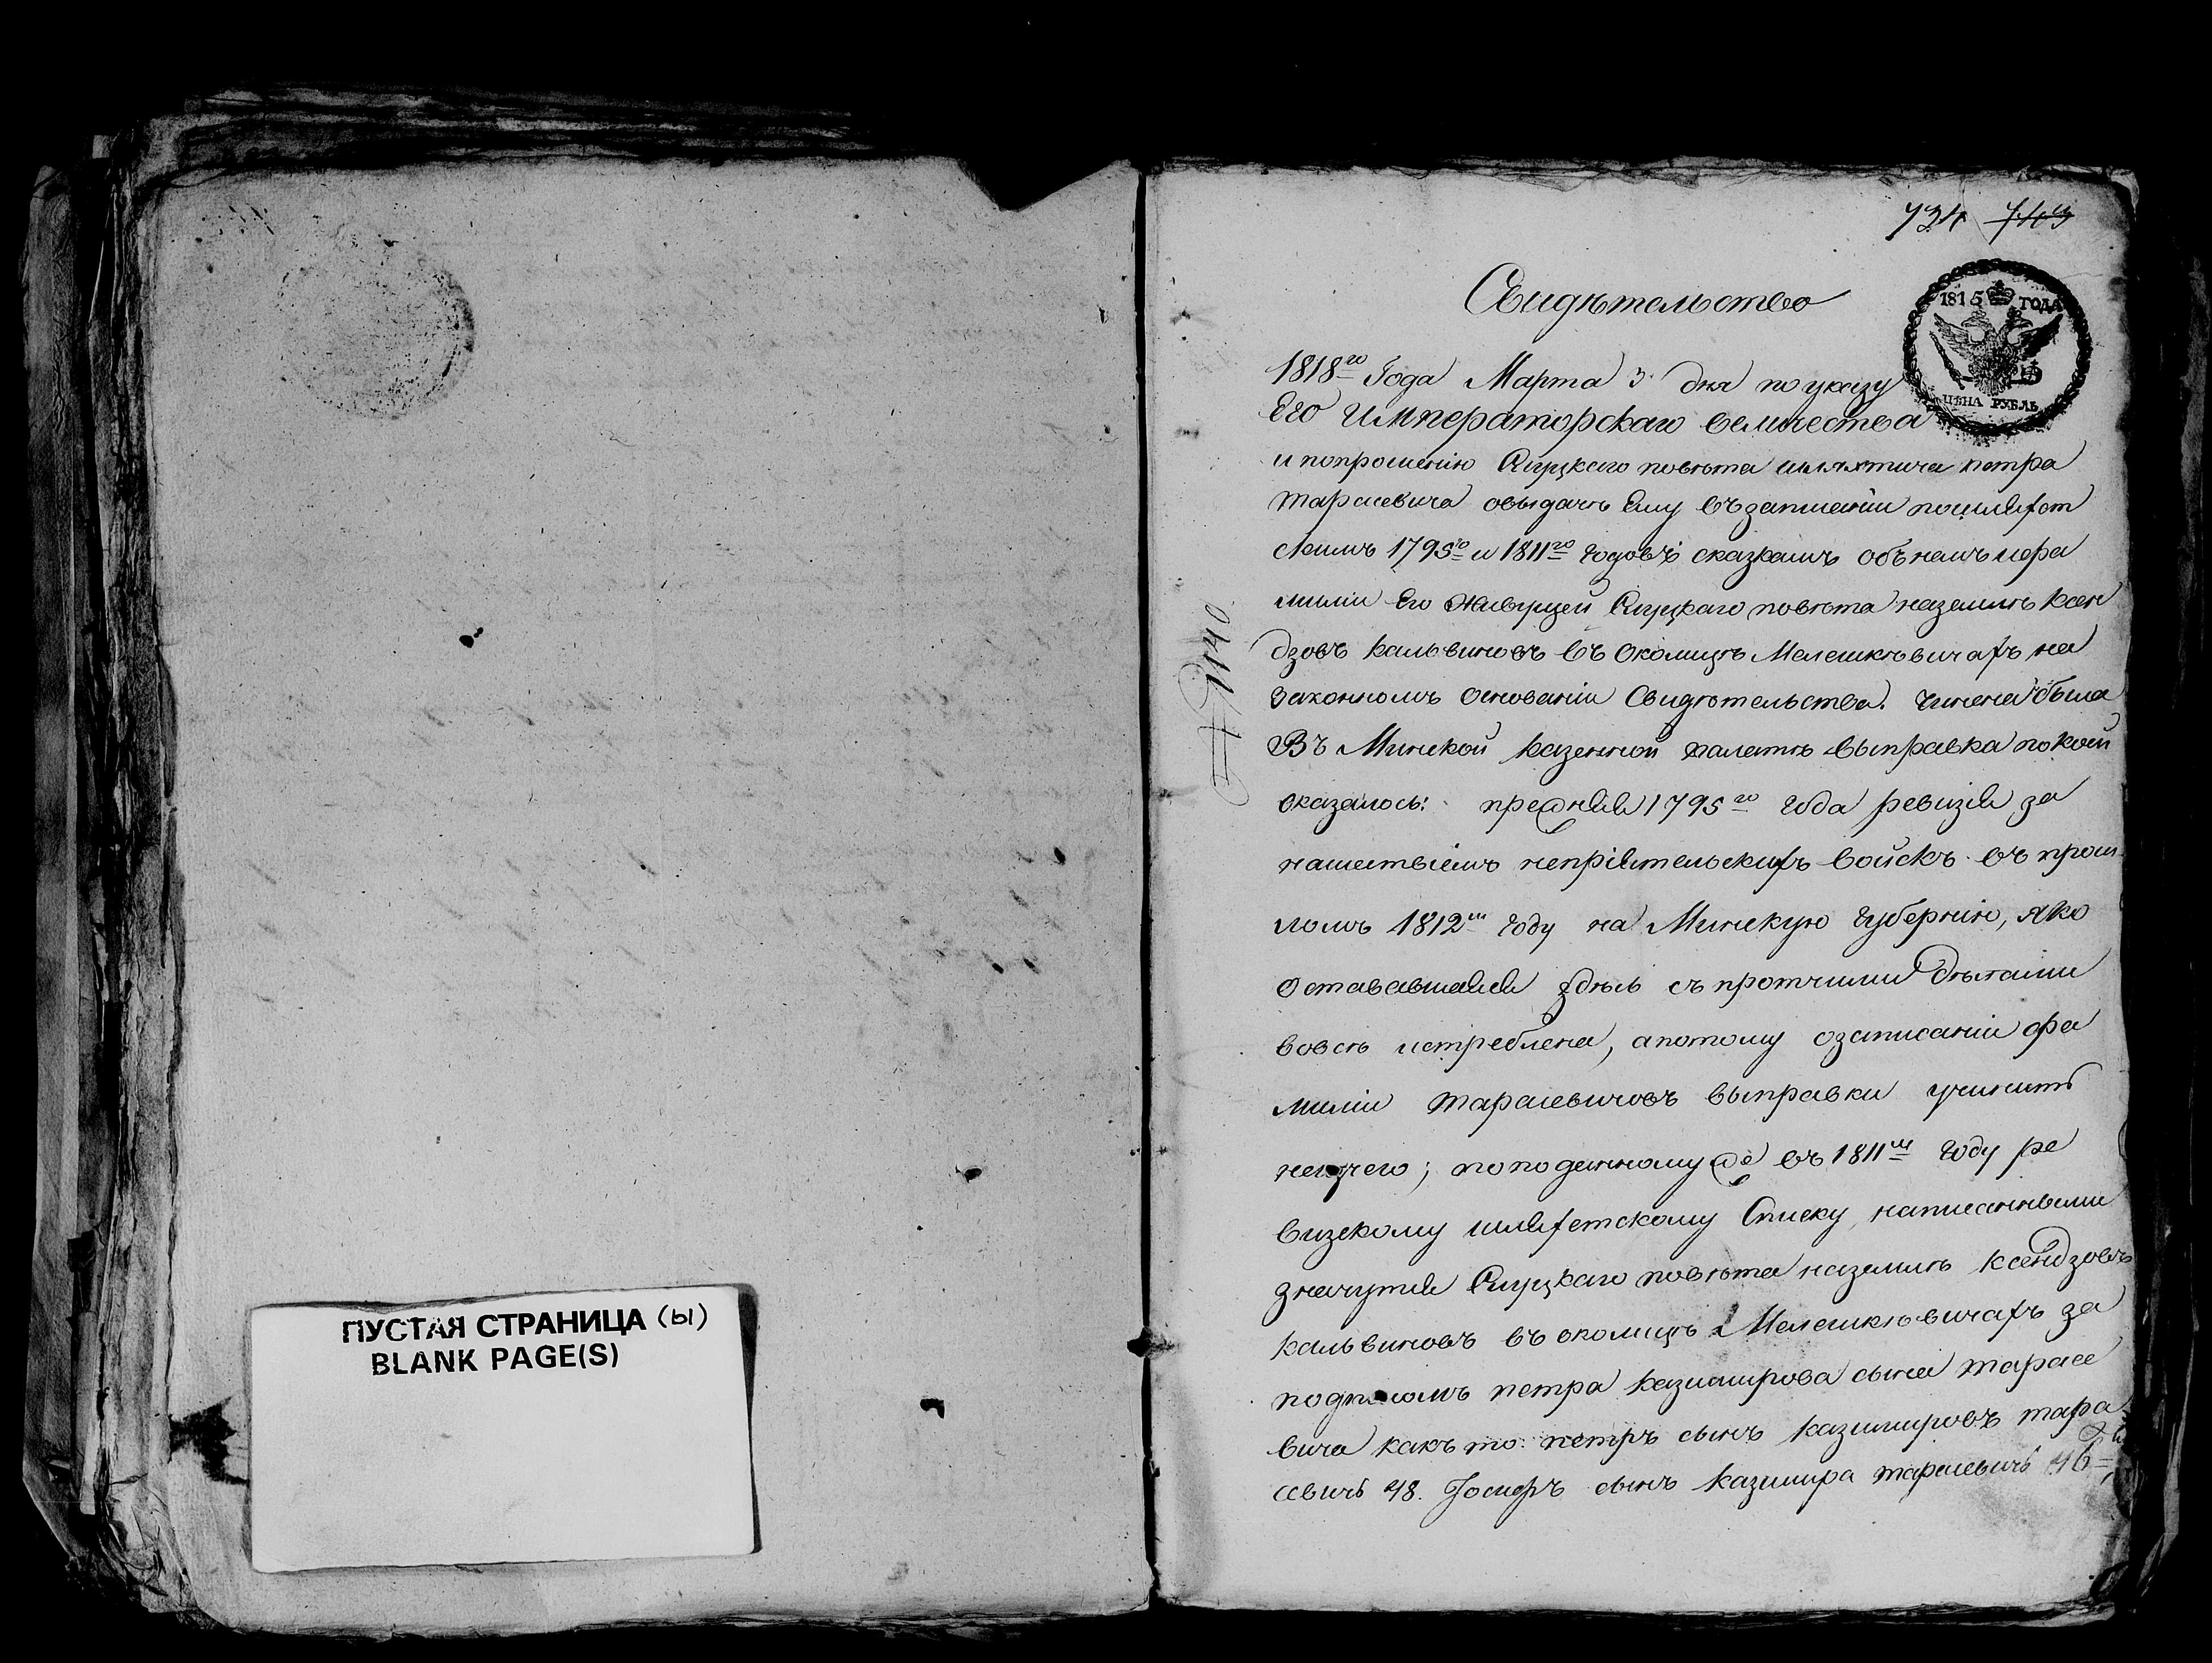 ПУСТАЯ СТРАНИЦА (ы)
BLANK PAGE(S)
734 743
Свидѣтельство
1815 ГОДА
ЦѢНА РУБЛЬ
1818го Года Марта 3 дня по указу
Его Императорскаго величества
и попрошенію Слуцкаго повѣта шляхтича петра
тарасевича овыдачѣ Ему възаписаніи пошляхет
скимъ 1795го и 1811го годовъ сказкамъ объ немъ ифа
миліи Его живущей Слуцкаго повѣта наземлѣ ксен
дзовъ кальвиновъ въ Околицѣ Мелешкѣвичахъ на
законномъ основаніи Свидѣтельства. чинена была
Въ Минской казенной палатѣ выправка покоей
оказалось: предняя 1795го года ревизія за
нашествіемъ непріятельскихъ войскъ въ прош
ломъ 1812м году на Минскую губернію, яко
оставшаяся здѣсь съ протчими дѣлами
вовсѣ истреблена, апотому озаписаніи фа
миліи тарасевичовъ выправки учинить
несчего; поподанному де въ 1811м году ре
визскому шляхетскому Списку написанными
значутся Слуцкаго повѣта наземлѣ ксендзовъ
кальвиновъ въ околицѣ Мелешкѣвичахъ за
подписомъ петра казимирова сына тарасе
вича какъ то: петръ сынъ казимировъ тара
севичъ 48. Іосифъ сынъ казимира тарасевичъ 46
№ 1140